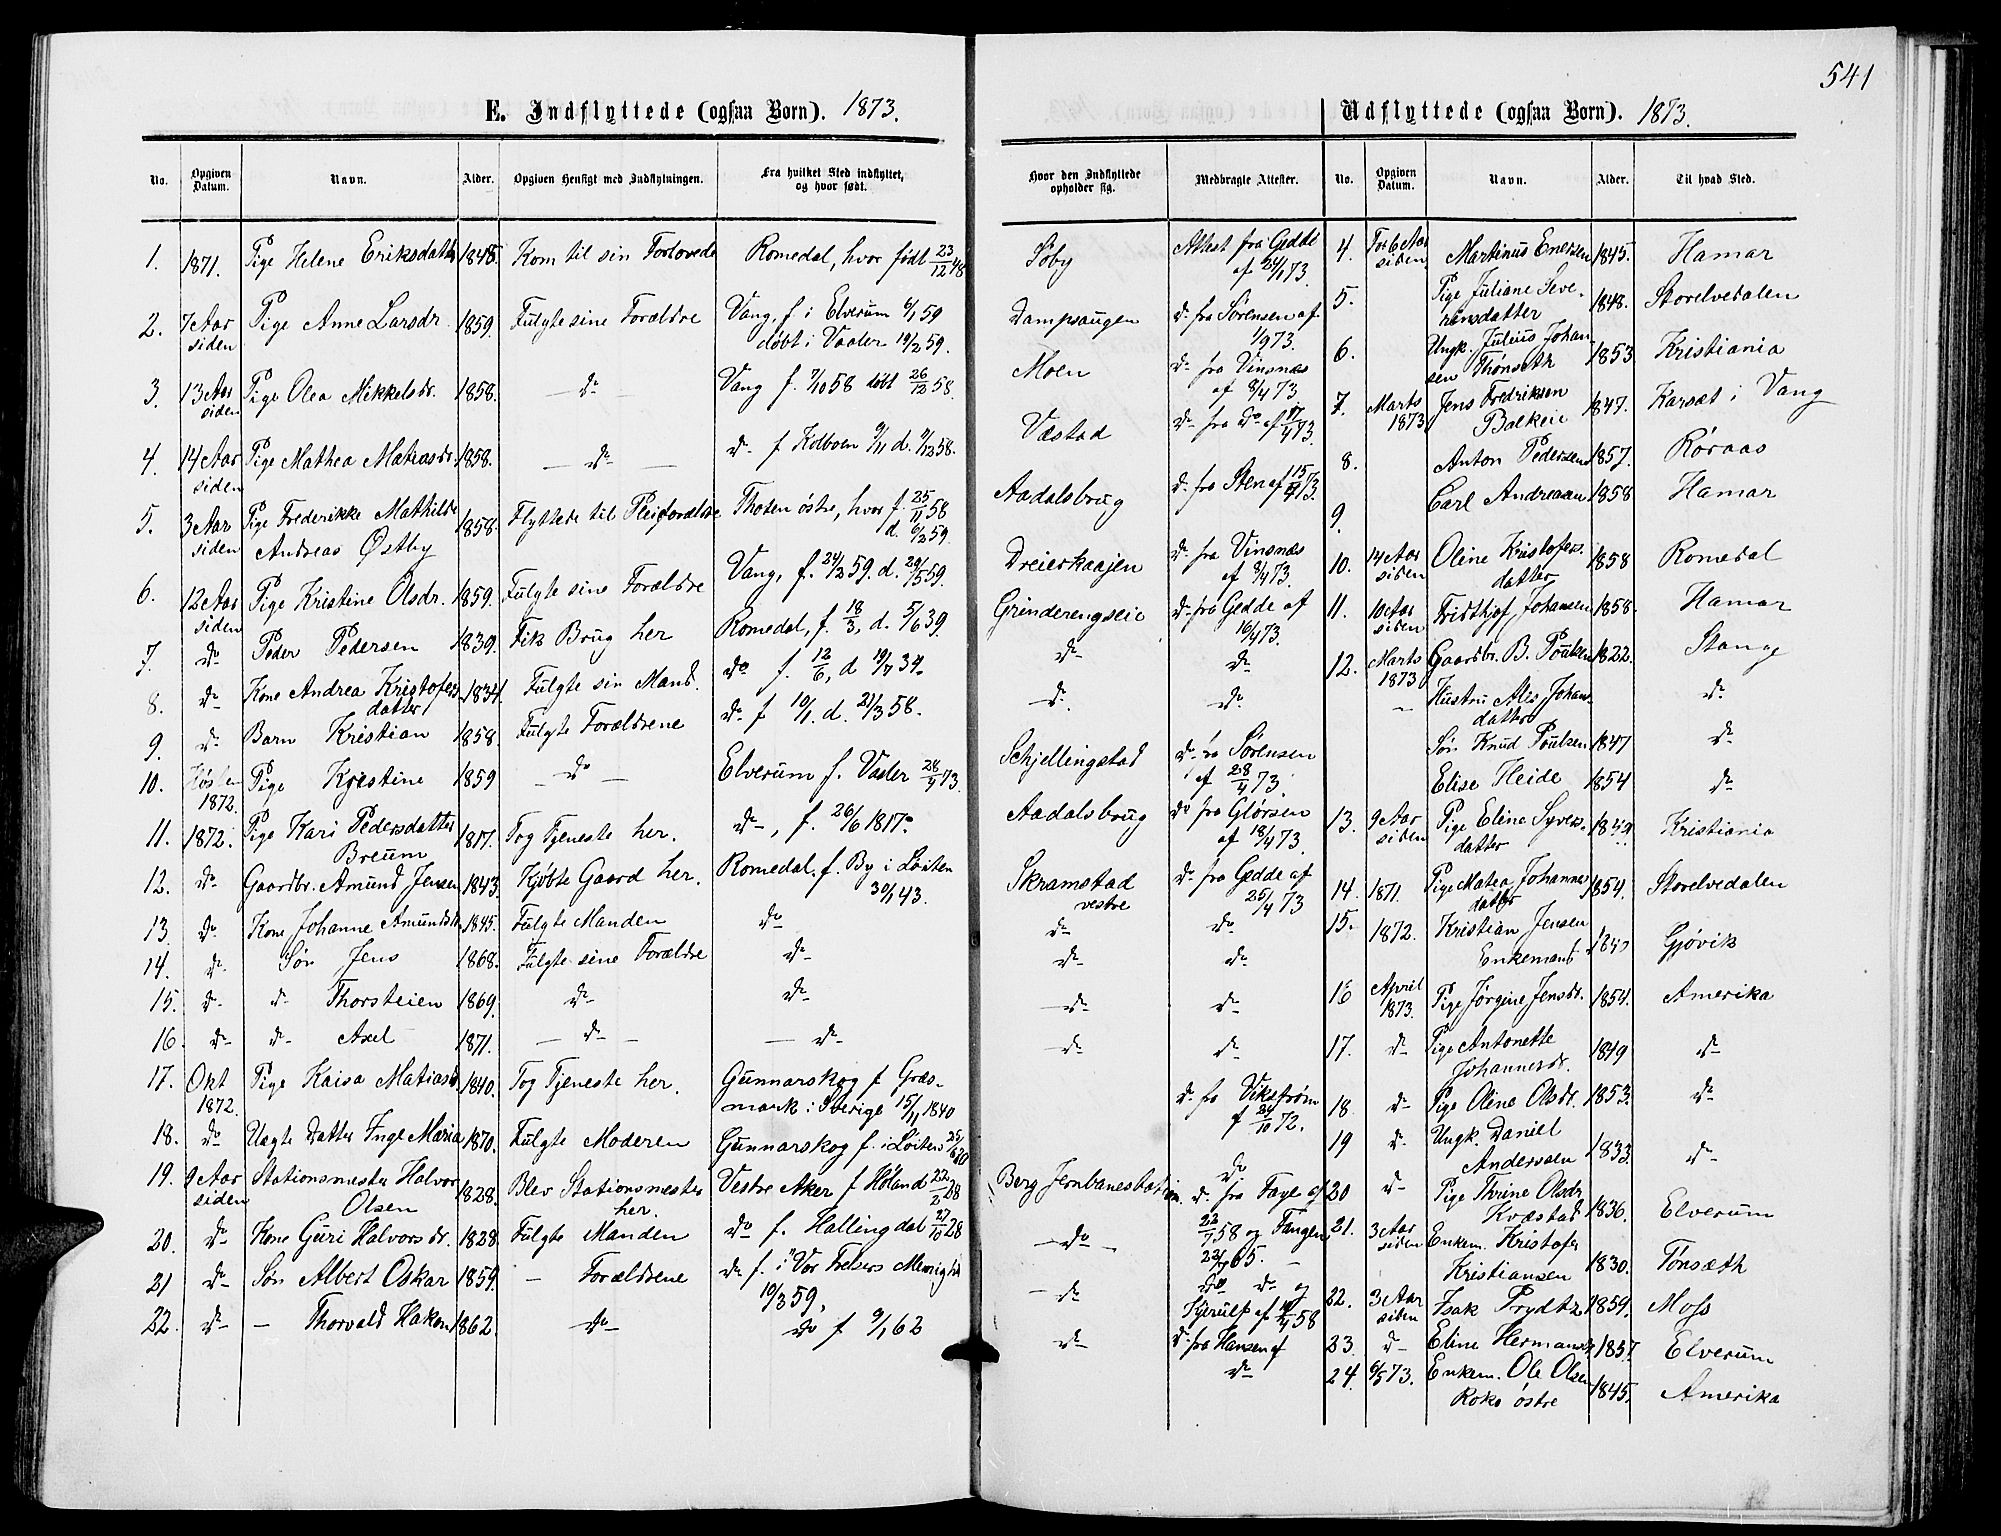 541
E. Indflyttede (ogsaa Børn). 1873.
No. Opgiven Datum. Navn. Alder. Opgiven Hensigt med Indflytningen. Fra hvilket Sted indflyttet, og hvor født.
1. 1871. Pige Helene Eriksdatter 1848. Kom til sin Forlovede Romedal, hvor født 23/12 48
2. 7 Aar siden Pige Anne Larsdr. 1859. Fulgte sine Forældre Vang, f. i Elverum 6/1 59
døbt i Vaaler 19/2 59.
3. 13 Aar siden Pige Olea Mikkelsdr. 1858. — do — Vang f. 7/10 58 døbt 26/12 58.
4. 14 Aar siden Pige Mathea Matiasdr. 1858. — do — do f Kolboen 9/11 d. 7/12 58.
5. 3 Aar siden Pige Frederikke Mathilde 1858. Flyttede til Pleiforældre Thoten østre, hvor f. 25/11 58
Andreas Østby d. 6/2 59.
6. 12 Aar siden Pige Kristine Olsdr. 1859. Fulgte sine Forældre Vang, f. 24/2 59. d. 29/5 59.
7. do Peder Pedersen 1839. Fik Brug her Romedal, f. 18/3, d. 5/6 39.
8. do Kone Andrea Kristofers 1834. Fulgte sin Mand. do f. 12/6, d 19/7 34.
datter
9. do Barn Kristian 1858. Fulgte Forældrene do f 10/1. d. 21/3 58.
10. Høsten 1872. Pige Kristine 1859 — do — Elverum f. Vaaler 28/4 73.
11. 1872. Pige Kari Pedersdatter 1817. Tog Tjeneste her. do, f. 26/6 1817.
Breum
12. do Gaardbr. Amund Jensen 1843. Kjøbte Gaard her. Romedal, f. By i Løiten
30/1 43.
13. do Kone Johanne Amundsdr. 1845. Fulgte Manden do
14. do Søn Jens 1868. Fulgte sine Forældre do
15. do do Thorsteien 1869. do do
16. do do Axel 1871. — do — — do —
17. Okt 1872. Pige Kaisa Matiasdr. 1840. Tog Tjeneste her. Gunnarskog f Græs-
mark i Sverige 15/11 1840
18. do Uægte Datter Inge Maria 1870. Fulgte Moderen Gunnarskog f. i Løiten 25/6 70
19. 9 Aar siden Stationsmester Halvor 1828. Blev Stationsmester Vestre Aker f Høland 22/2 28
Olsen her.
20. do Kone Guri Halvorsdr. 1828. Fulgte Manden do f. Hallingdal 27/10 28
21 do Søn Albert Oskar 1859. — Forældrene do f. i "Vor Frelsers Menighed
19/3 59.
22. do — Thorvald Hakon 1862. do do f 9/1 62
Hvor den Indflyttede opholder sig. Medbragte Attester.
Søby Attest fra Gedde
af 24/1 73.
Dampsaugen do fra Sørensen af
1/9 73.
Moen do fra Vinsnæs
af 8/4 73
Væstad do fra do af 17/4 73.
Aadalsbrug do fra Sten af 15/4 73.
Dreierkaajen do fra Vinsnæs
af 8/4 73.
Grinderengseie do fra Gedde af
16/4 73.
do do
do. do
Schjellingstad do fra Sørensen
af 28/4 73.
Aadalsbrug do fra Glørsen
af 18/4 73.
Skramstad do fra Gedde af
vestre 25/4 73
do do
do do
do do
do do
do fra Vikstrøm
af 24/10 72.
do
Berg Jernbanestation do fra Faye af
do 22/7 58 og Fangen
22/ 65.
do do do og
Kjerulf af 58
do do fra Hansen af
do
Udflyttede (ogsaa Børn). 1873.
No. Opgiven Datum. Navn. Alder. Til hvad Sted.
4. For 6 Aar siden Martinus Enersen 1845. Hamar
5. Pige Juliane Seve- 1848. Storelvedalen
rinsdatter
6. Ungk. Julius Johan- 1853 Kristiania
sen Thønseth
7. Marts 1873 Jens Fredriksen 1847. Karsæt i Vang
Bakken
8. Anton Pedersen 1857. Røraas
9 Carl Andreasen 1858 Hamar
10. 14 Aar siden Oline Kristofers- 1858 Romedal
datter
11. 10 Aar siden Fridthjof Johansen 1858. Hamar
12. Marts 1873 Gaardbr. B. Poulsen 1822. Stange
— Hustru Alis Johans- do
datter
Søn Knud Poulsen 1847 do
Elise Heide 1854 do
13. 9 Aar siden Pige Eline Syver- Kristiania
datter
14. 1871. Pige Matea Johannes 1854. Storelvedalen
datter
15. 1872. Kristian Jensen Gjøvik
Enkemand
16 April 1873. Pige Jørgine Jensdr. 1854. Amerika
17. do Pige Antonette 1849 do
Johannesdr.
18. do Pige Oline Olsdr. 1853. do
19 do Ungk. Daniel 1833. do
Anderssen
20 do Pige Thrine Olsdr 1836. Elverum
Kvæstad
21. 3 Aar siden Enkem. Kristofer 1830. Tønsæth
Kristiansen
22. 3 Aar siden Isak Prydtz 1859. Moss
23. do Eline Hermansdr. 1857. Elverum
24. 6/5 73. Enkem. Ole Olsen 1845. Amerika
Roko østre